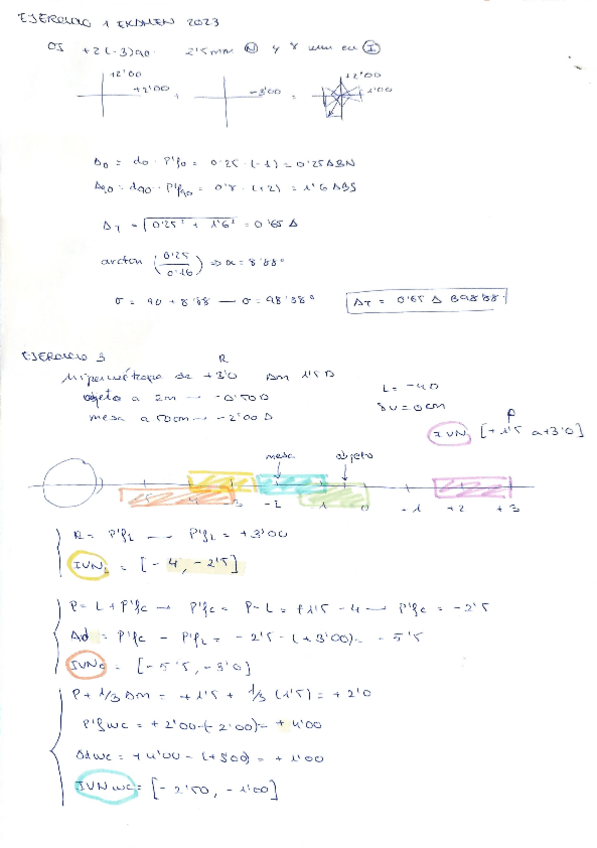 EJERCICIO 1 EXAMEN 2023
OI +2 (-3) 90 2'5mm N y 8 mm en I
+2'00
+2'00 + -3'00 = +2'00
1'00
Δ0 = d0 · P'f0 = 0'25 · (-1) = 0'25 Δ BN
Δ90 = d90 · P'f90 = 0'8 · (+2) = 1'6 Δ BS
ΔT = √0'25² + 1'6² = 0'65 Δ
arctan (0'25/0'16) ⇒ α = 8'88°
σ = 90 + 8'88 — σ = 98'88°
ΔT = 0'65 Δ B98'88°
EJERCICIO 3
R
Hipermétrope de +3'0 Am 1'5 D
objeto a 2m → -0'50 D
mesa a 50cm → -2'00 D
L = -4D
δv = 0cm
P
IVN [+1'5 a +3'0]
mesa objeto
-2 1 0 -1 +2 +3
R = P'fL → P'fL = +3'00
IVNL = [-4, -2'5]
P = L + P'fc → P'fc = P - L = +1'5 - 4 → P'fc = -2'5
Ad = P'fc - P'fL = -2'5 - (+3'00) = -5'5
IVNc = [-5'5, -3'0]
P + 1/3 Am = +1'5 + 1/3 (1'5) = +2'0
P'fwc = +2'00 - (-2'00) = +4'00
Adwc = +4'00 - (+3'00) = +1'00
IVN wc = [-2'50, -1'00]